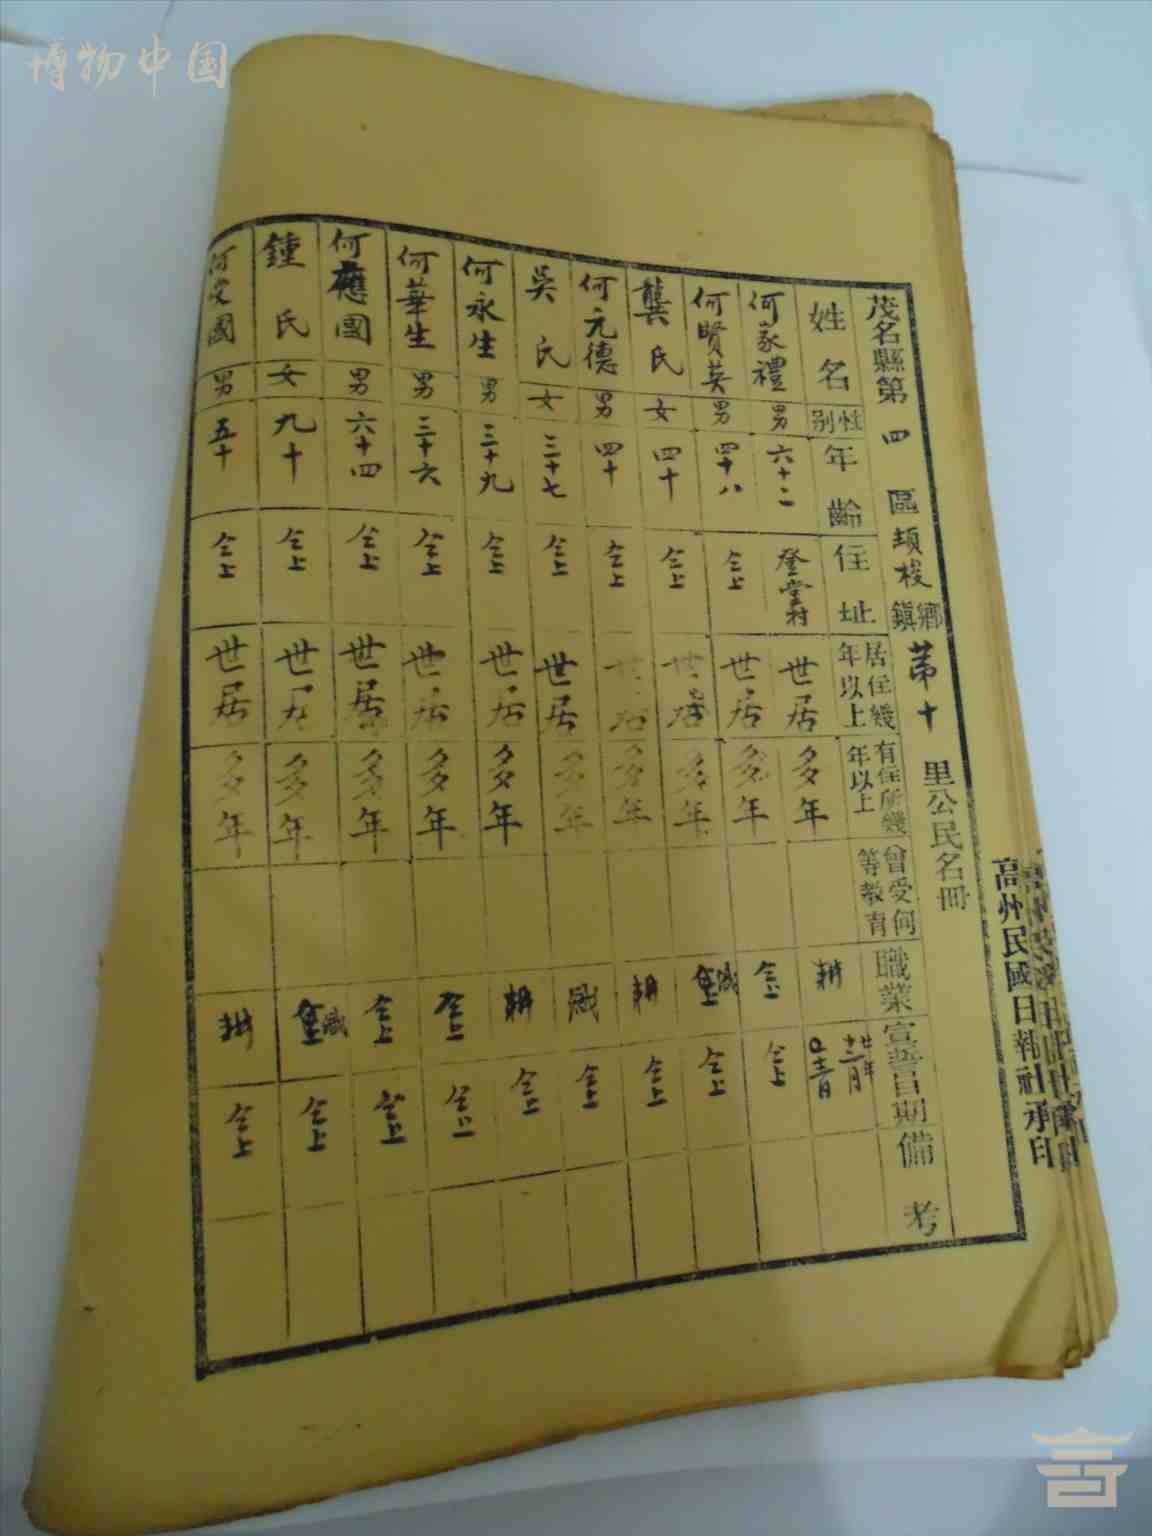 博物中国
茂名縣第四區頭棧鄉鎮第十里公民名冊
高州民國日報社承印
姓名 性別 年齡 住址 居住幾年以上 有住所幾年以上 曾受何等教育 職業 宣誓日期 備考
何家禮 男 六十二 登堂村 世居 多年 耕 廿年十二月
何賢英 男 四十八 仝上 世居 多年 仝上 仝上
龔氏 女 四十 仝上 世居 多年 織 仝上
何元德 男 四十 仝上 世居 多年 耕 仝上
吳氏 女 三十七 仝上 世居 多年 織 仝上
何永生 男 三十九 仝上 世居 多年 耕 仝上
何華生 男 三十六 仝上 世居 多年 仝上 仝上
何應國 男 六十四 仝上 世居 多年 仝上 仝上
鍾氏 女 九十 仝上 世居 多年 織 仝上
何 國 男 五十 仝上 世居 多年 耕 仝上